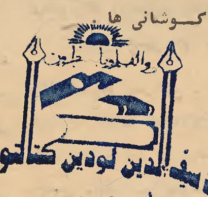 کوشانی ها
ن والقلم وما یسطرون
سیف الدین لودین کتا